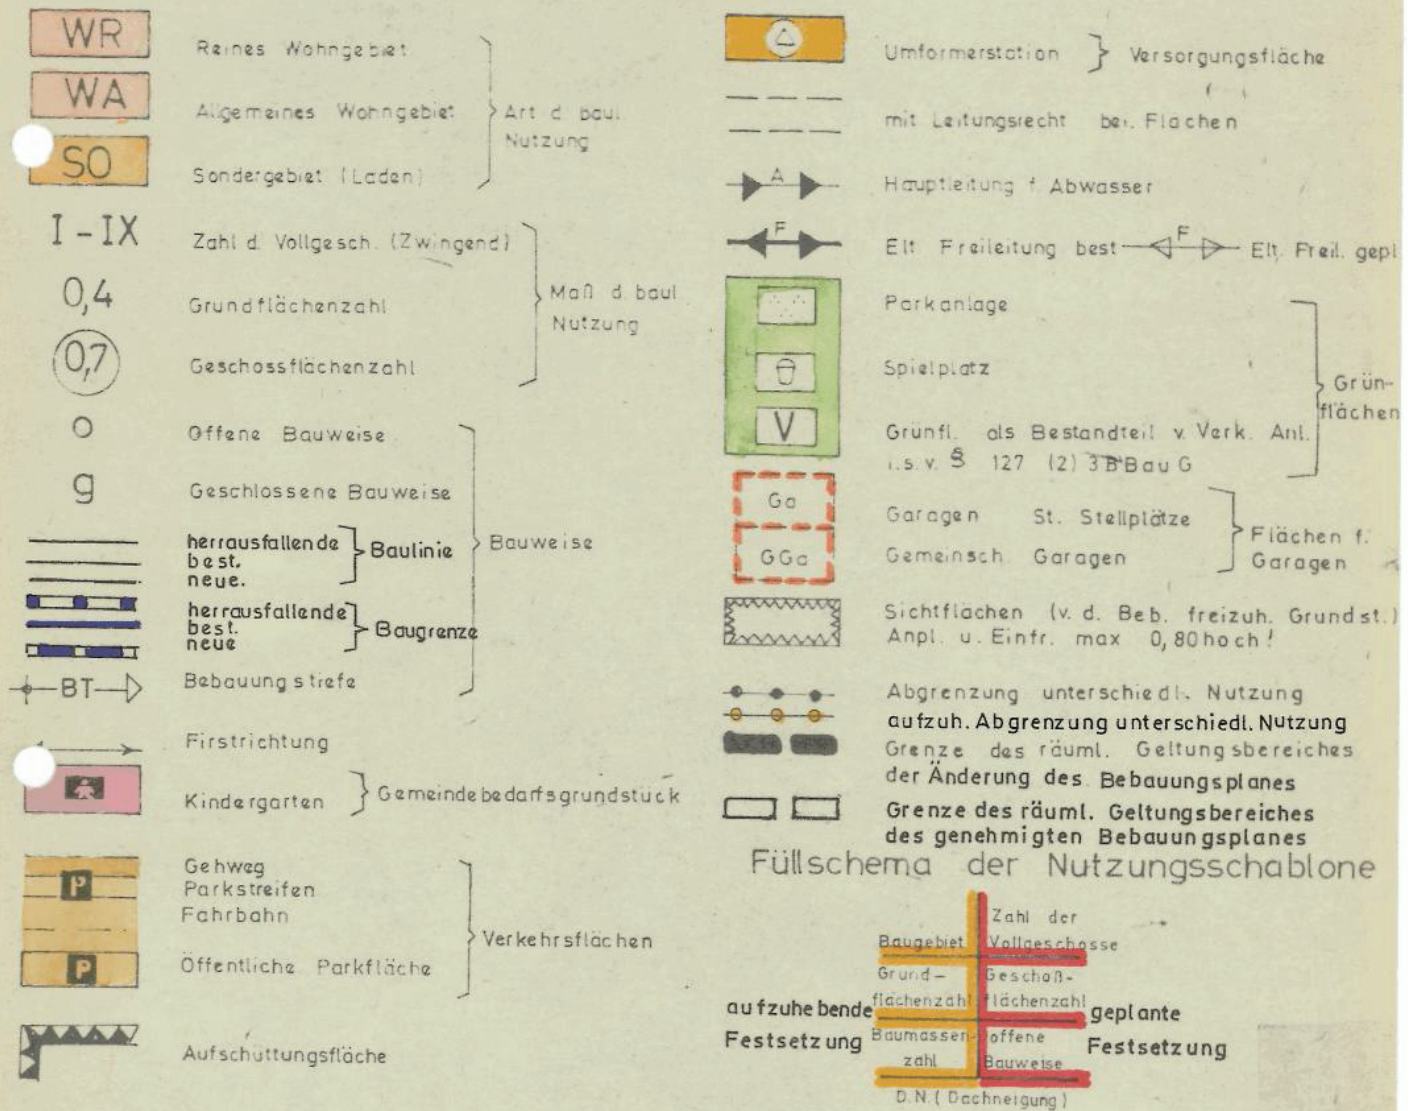 WR Reines Wohngebiet
WA Allgemeines Wohngebiet
Art d. baul.
Nutzung
SO Sondergebiet (Laden)
I - IX Zahl d. Vollgesch. (Zwingend)
0,4 Grundflächenzahl
Maß d. baul.
Nutzung
0,7 Geschossflächenzahl
o Offene Bauweise
g Geschlossene Bauweise
Bauweise
herrausfallende
best.
neue.
Baulinie
herrausfallende
best.
neue
Baugrenze
BT Bebauungstiefe
Firstrichtung
Kindergarten Gemeindebedarfsgrundstück
Gehweg
P Parkstreifen
Fahrbahn
Verkehrsflächen
P Öffentliche Parkfläche
Aufschüttungsfläche
Umformerstation Versorgungsfläche
mit Leitungsrecht bel. Flächen
A Hauptleitung f. Abwasser
F Elt Freileitung best F Elt. Freil. gepl
Parkanlage
Spielplatz
Grün-
flächen
V Grünfl. als Bestandteil v. Verk. Anl.
i.s.v. § 127 (2) 3 B Bau G
Ga Garagen St. Stellplätze
GGa Gemeinsch. Garagen
Flächen f.
Garagen
Sichtflächen (v. d. Beb. freizuh. Grundst.)
Anpl. u. Einfr. max 0,80 hoch!
Abgrenzung unterschiedl. Nutzung
aufzuh. Abgrenzung unterschiedl. Nutzung
Grenze des räuml. Geltungsbereiches
der Änderung des Bebauungsplanes
Grenze des räuml. Geltungsbereiches
des genehmigten Bebauungsplanes
Füllschema der Nutzungsschablone
Baugebiet
Zahl der
Vollgeschosse
Grund-
flächenzahl
Geschoß-
flächenzahl
aufzuhebende
Festsetzung
geplante
Festsetzung
Baumassen-
zahl
offene
Bauweise
D.N. (Dachneigung)